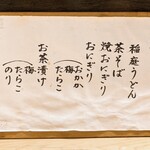 稲庭うどん
茶そば
焼おにぎり
おにぎり
おかか
梅
たらこ
お茶漬け
梅
たらこ
のり